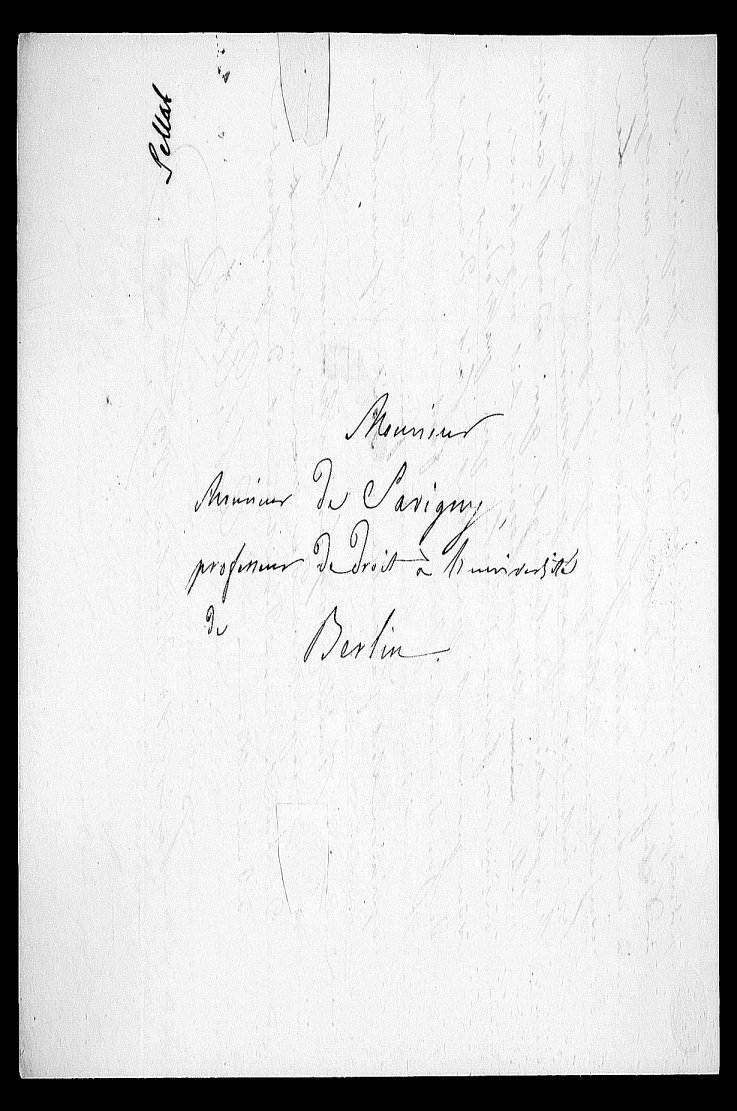 Pellat
Monsieur
Monsieur de Savigny,
professeur de droit à l'université
de Berlin.